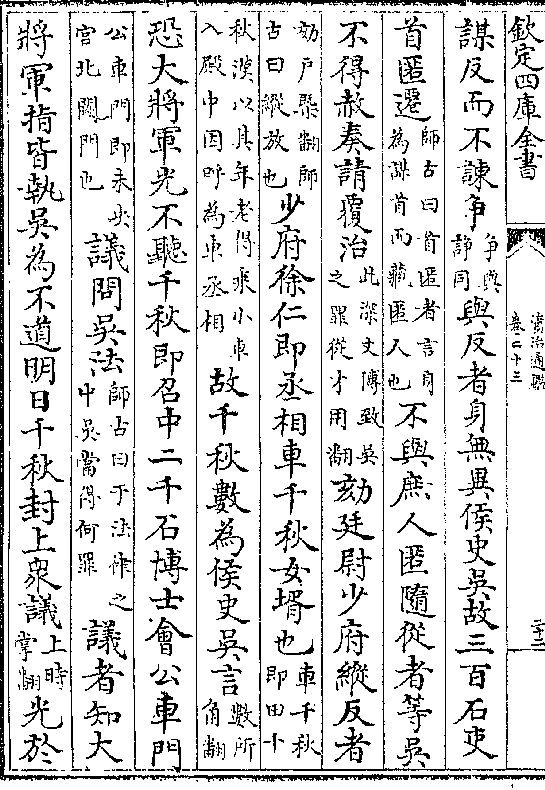 欽定四庫全書
資治通鑑
卷二十三
二十二
謀反而不諫爭爭與諍同與反者身無異侯史吳故三百石吏
首匿遷師古曰首匿者言身為謀首而藏匿人也不與庶人匿隨從者等吳
不得赦奏請覆治此深文傅致吳之罪從才用翻劾廷尉少府縱反者
劾戶槩翻師古曰縱放也少府徐仁即丞相車千秋女壻也車千秋即田千
秋漢以其年老得乘小車入殿中因呼為車丞相故千秋數為侯史吳言數所角翻
恐大將軍光不聽千秋即召中二千石博士會公車門
公車門即未央宮北闕門也議問吳法師古曰于法律之中吳當得何罪議者知大
將軍指皆執吳為不道明日千秋封上衆議上時掌翻光於